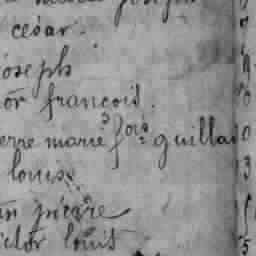 joseph
césar.
joseph
or françois.
erre marie fois guillau
louis
an pierre
ictor louis